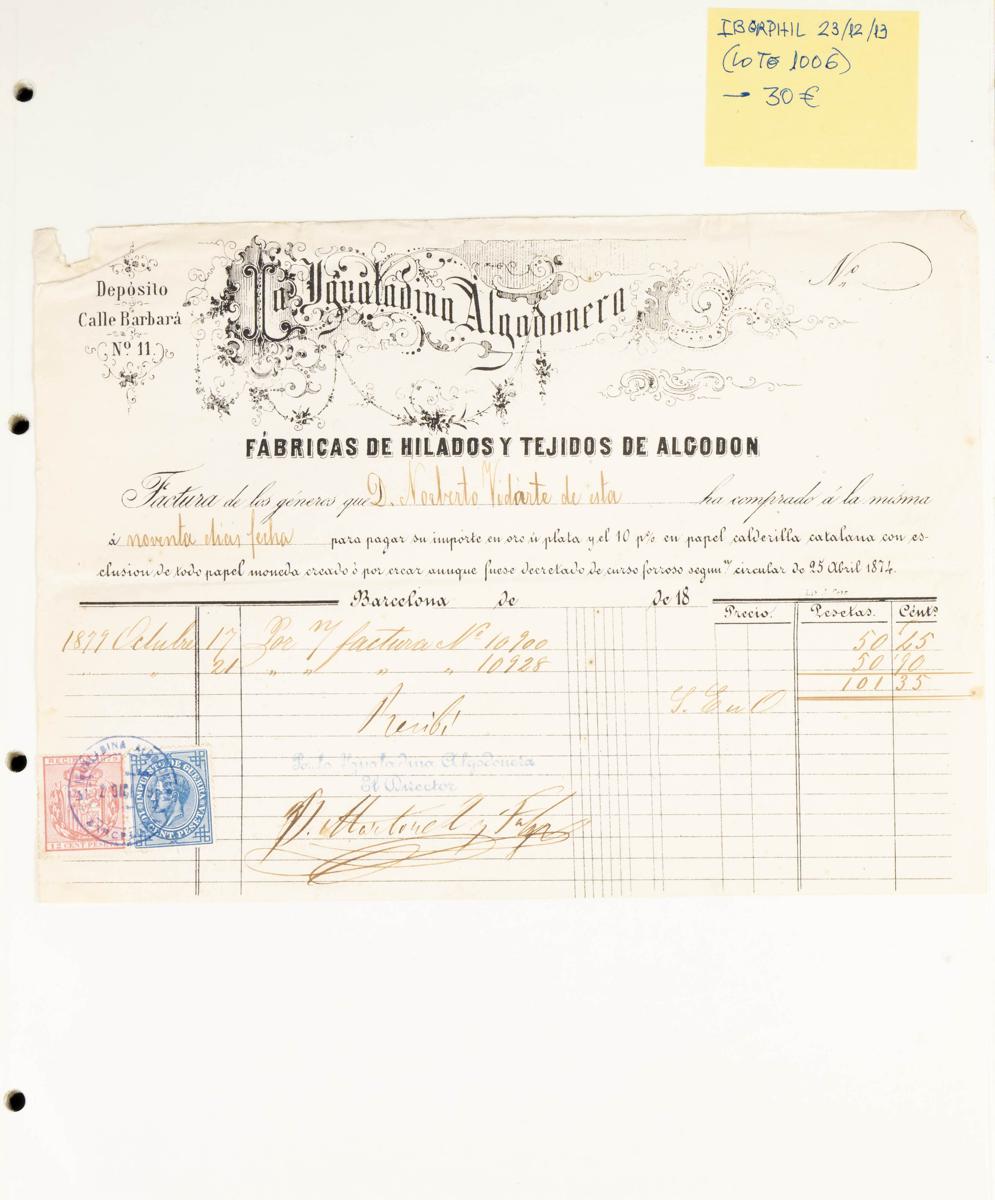 IBERPHIL 23/12/13
(LOTE 1006)
→ 30€
Depósito
Calle Barbará
Nº 11.
La Igualadina Algodonera
Nº
FÁBRICAS DE HILADOS Y TEJIDOS DE ALGODON
Factura de los géneros que D. Norberto Vidarte de ésta ha comprado á la misma
á noventa dias fecha para pagar su importe en oro ú plata y el 10 p% en papel calderilla catalana con es-
clusion de todo papel moneda creado ó por crear aunque fuese decretado de curso forzoso segun n/ circular de 25 Abril 1874.
Barcelona de de 18
Precio. Pesetas. Cénts
1879 Octubre 17 Por n/ factura Nº 10900 50 45
" " 21 " " " " 10928 50 90
101 35
S. E u O
Recibí
P. la Igualadina Algodonera
El Director
IGUALADINA ALGODONERA
BARCELONA
12 CENT. PESETA
IMPUESTO DE GUERRA
10 CENT. PESETA